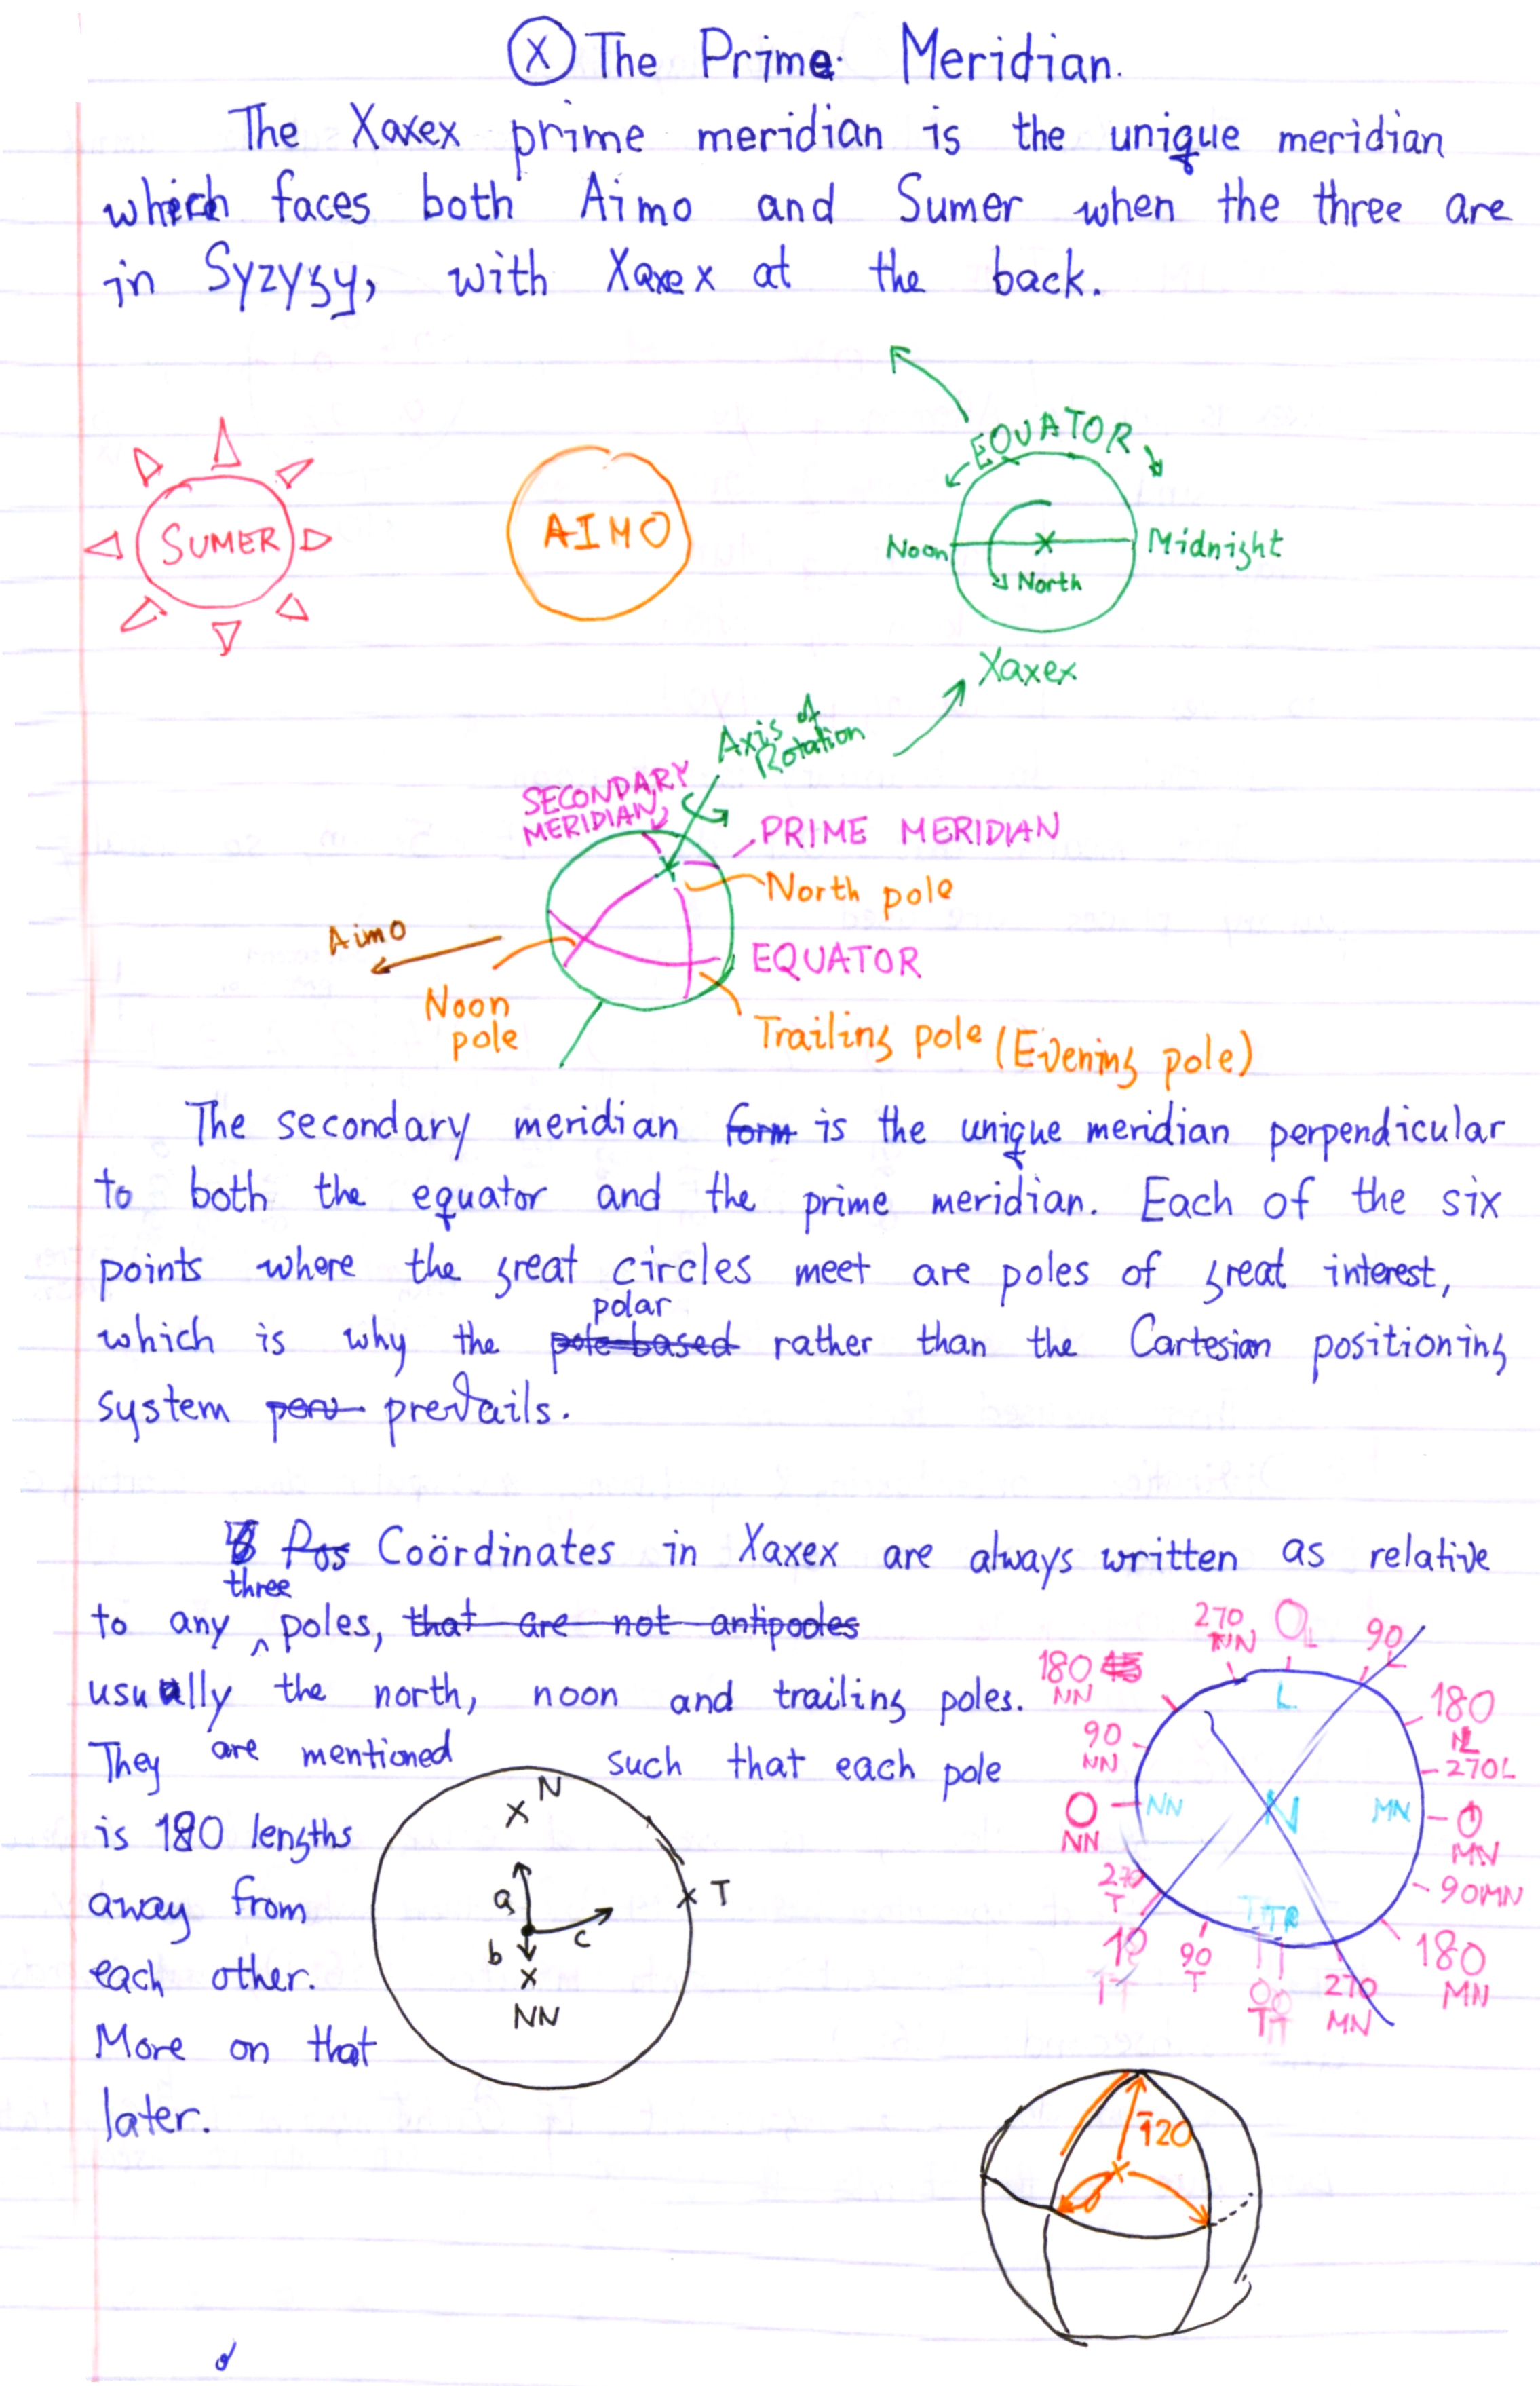 Ⓧ The Prime Meridian.
The Xaxex prime meridian is the unique meridian
which faces both Aimo and Sumer when the three are
in Syzygy, with Xaxex at the back.
EQUATOR
SUMER
AIMO
Noon
Midnight
North
Xaxex
Axis of
Rotation
SECONDARY
MERIDIAN
PRIME MERIDIAN
North pole
Aimo
EQUATOR
Noon
pole
Trailing pole (Evening pole)
The secondary meridian form is the unique meridian perpendicular
to both the equator and the prime meridian. Each of the six
points where the great circles meet are poles of great interest,
polar
which is why the pole-based rather than the Cartesian positioning
system perv prevails.
Pos Coördinates in Xaxex are always written as relative
three
to any poles, that are not antipodes
usually the north, noon and trailing poles.
They are mentioned such that each pole
is 180 lengths
away from
each other.
More on that
later.
N
a
T
b
c
NN
270
NN
0L
90
L
180
NN
180
L
90
NN
270L
0
NN
0
MN
270
T
90MN
90
T
270
MN
180
MN
L
NN
N
MN
TR
120